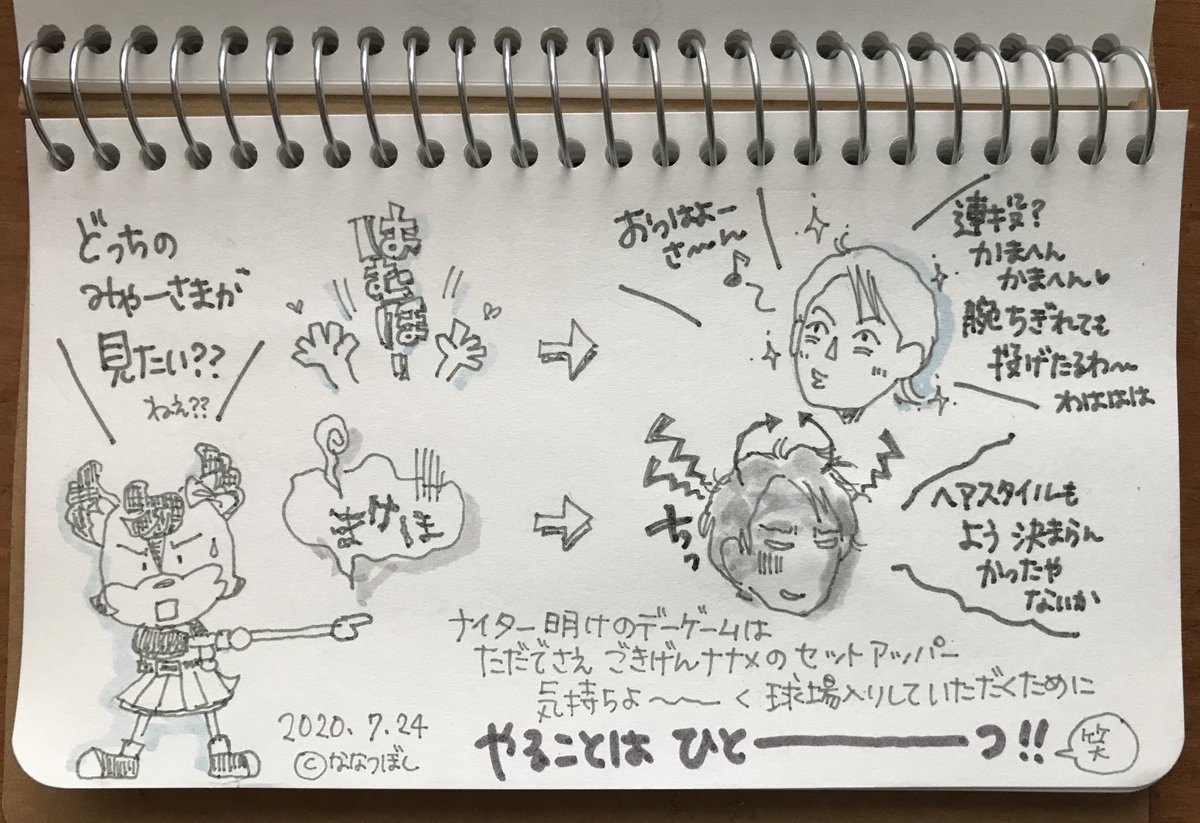 どっちの
みやーさまが
見たい??
ねえ??
まけほ
おっはよー
さ〜ん
♪
連投?
かまへん
かまへん♥
腕ちぎれても
投げたるわ〜
わははは
ちっ
ヘアスタイルも
よう決まらん
かったや
ないか
ナイター明けのデーゲームは
ただでさえ ごきげんナナメのセットアッパー
気持ちよ〜〜〜く球場入りしていただくために
やることは ひと―――――つ!!
笑
2020.7.24
©ななつぼし